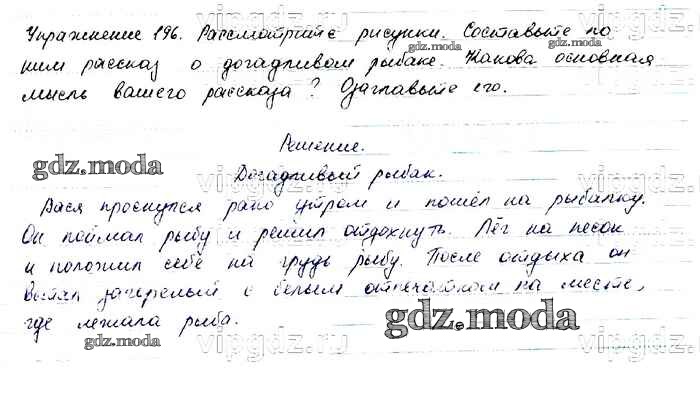 Упражнение 196. Рассмотрите рисунки. Составьте по
ним рассказ о догадливом рыбаке. Какова основная
мысль вашего рассказа? Озаглавьте его.
Решение.
Догадливый рыбак.
Вася проснулся рано утром и пошёл на рыбалку.
Он поймал рыбу и решил отдохнуть. Лёг на песок
и положил себе на грудь рыбу. После отдыха он
встал загорелый с белым отпечатком на месте,
где лежала рыба.
gdz.moda
gdz.moda
gdz.moda
gdz.moda
gdz.moda
gdz.moda
vipgdz.net
vipgdz.net
vipgdz.net